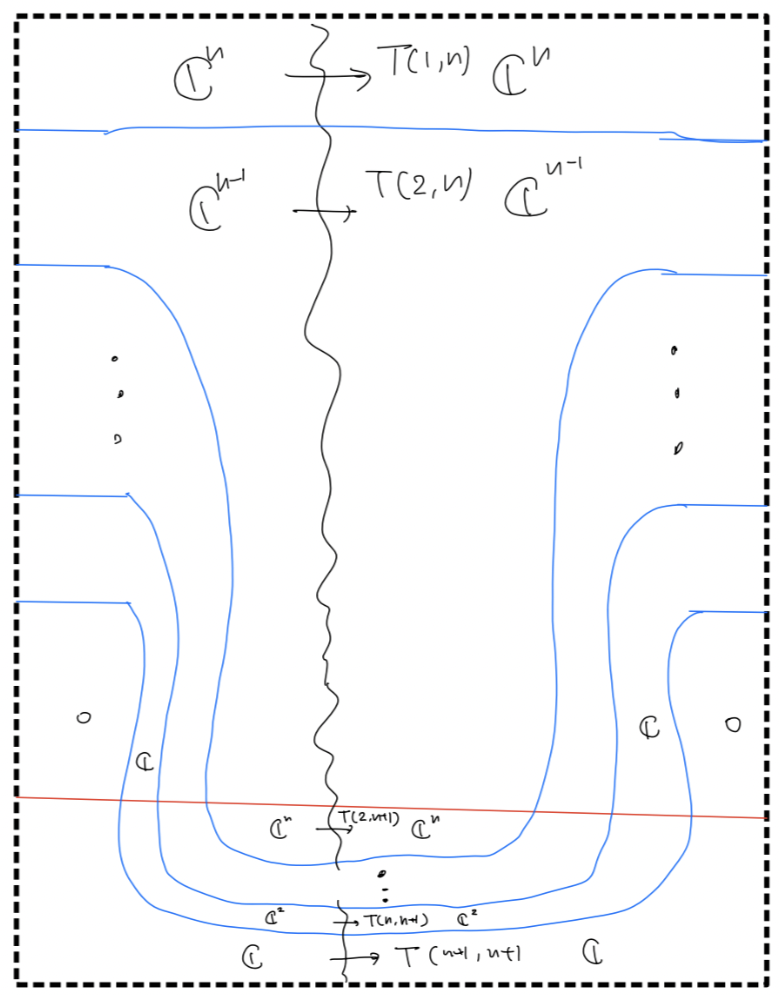 ℂⁿ → T(1,n) ℂⁿ
ℂⁿ⁻¹ → T(2,n) ℂⁿ⁻¹
⋮ ⋮
0 ℂ ℂ 0
ℂⁿ → T(2,n+1) ℂⁿ
⋮
ℂ² → T(n,n+1) ℂ²
ℂ → T(n+1,n+1) ℂ